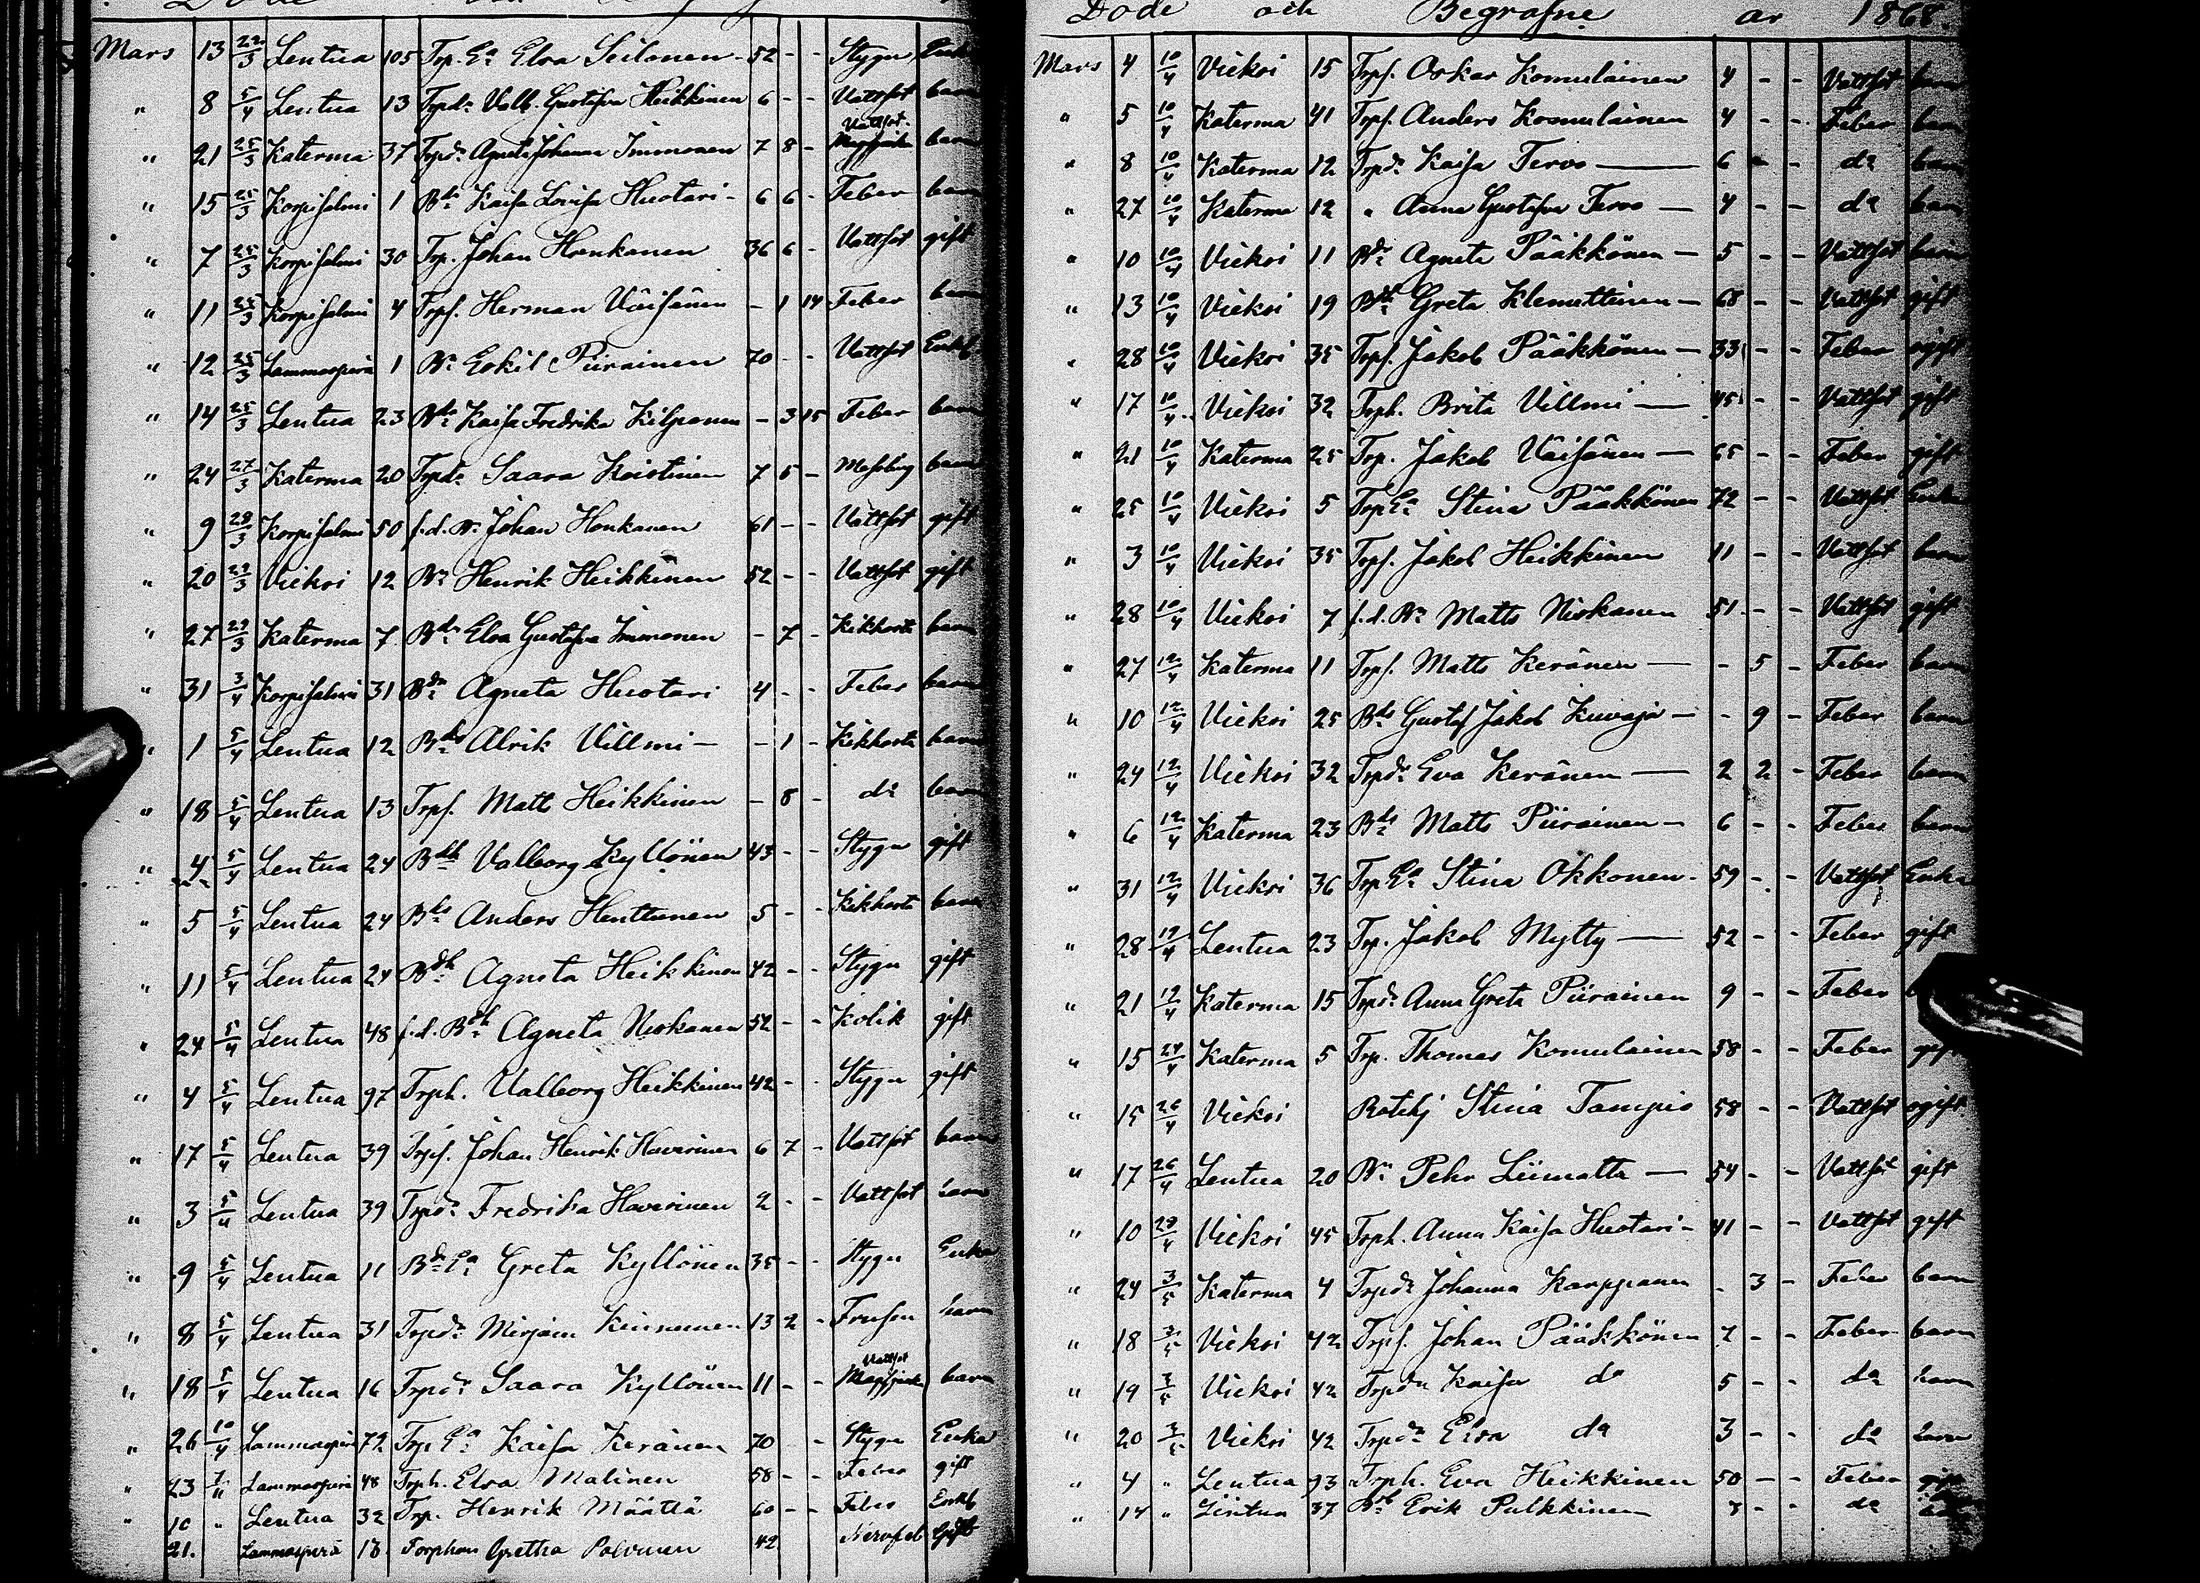 Mars 13 22/3 Lentua 105 Trp. Ea Elsa Seilonen 52 - - Stygn Enka
" 8 5/4 Lentua 13 Trpdr Valb. Gustafva Heikkinen 6 - - Vattsot barn
" 21 25/3 Katerma 37 Trpdr Agneta Johanna Immonen 7 8 - Vattsot barn
" 15 25/3 Korpisalmi 1 Bdr Kaisa Lovisa Huotari 6 6 - Feber barn
" 7 25/3 Korpisalmi 30 Trp. Johan Honkanen 36 6 - Vattsot gift
" 11 25/3 Korpisalmi 4 Trps. Herman Väisänen - 1 14 Feber barn
" 12 25/3 Lammasperä 1 Bn Eskil Piirainen 70 - - Vattsot Enkl.
" 14 25/3 Lentua 23 Bdr Kaisa Fredrika Kilponen - 3 15 Feber barn
" 24 27/3 Katerma 20 Trpdr Saara Keistinen 7 5 - Messling barn
" 9 28/3 Korpisalmi 50 f.d. Bn Johan Honkanen 61 - - Vattsot gift
" 20 29/3 Viekri 12 Bn Henrik Heikkinen 52 - - Vattsot gift
" 27 29/3 Katerma 7 Bdr Elsa Gustafva Immonen - 7 - Kikhosta barn
" 31 3/4 Korpisalmi 31 Bdr Agneta Huotari 4 - - Feber barn
" 1 5/4 Lentua 12 Bds Alrik Villmi - 1 - Kikhosta barn
" 18 5/4 Lentua 13 Trps. Matt Heikkinen - 8 - do barn
" 4 5/4 Lentua 24 Bdh Valborg Kyllönen 43 - - Stygn gift
" 5 5/4 Lentua 24 Bds Anders Henttunen 5 - - Kikhosta barn
" 11 5/4 Lentua 24 Bdh Agneta Heikkinen 42 - - Stygn gift
" 24 5/4 Lentua 48 f.d. Bdh Agneta Niskanen 52 - - Kolik gift
" 4 5/4 Lentua 97 Trph. Valborg Heikkinen 42 - - Stygn gift
" 17 5/4 Lentua 39 Trps. Johan Henrik Haverinen 6 7 - Vattsot barn
" 3 5/4 Lentua 39 Trpdr Fredrika Haverinen 2 - - Vattsot barn
" 9 5/4 Lentua 11 Bdn Ea Greta Kyllönen 35 - - Stygn Enka
" 8 5/4 Lentua 31 Trpdr Mirjam Kinnunen 13 2 - Frusen barn
" 18 5/4 Lentua 16 Trpdr Saara Kyllönen 11 - - Vattsot barn
" 26 10/4 Lammasperä 72 Trp Ea Kaisa Keränen 70 - Stygn Enka
" 23 Lammasperä 48 Trph. Elsa Malinen 58 - - Feber gift
" 10 " Lentua 32 Trp. Henrik Määttä 60 - - Feber Enkl
21. Lammasperä 18 Torphm Gretha Polvinen 42 Nervfeb Gift
Döde och Begrafne år 1868.
Mars 4 10/4 Viekri 15 Trps. Oskar Komulainen 4 - - Vattsot barn
" 5 10/4 Katerma 41 Trps. Anders Komulainen 4 - - Feber barn
" 8 10/4 Katerma 12 Trpdr Kaisa Tervo 6 - - do barn
" 27 10/4 Katerma 12 " Anna Gustafva Tervo 4 - - do barn
" 10 10/4 Viekri 11 Bdr Agneta Pääkkönen 5 - - Vattsot barn
" 13 10/4 Viekri 19 Bdh Greta Klemettinen 68 - - Vattsot gift
" 28 10/4 Viekri 35 Trps. Jakob Pääkkönen 33 - - Feber ogift
" 17 10/4 Viekri 32 Trph. Brita Villmi 45 - - Vattsot gift
" 21 10/4 Katerma 25 Trp. Jakob Väisänen 65 - - Feber gift
" 25 10/4 Viekri 5 Trp Ea Stina Pääkkönen 72 - - Vattsot Enka
" 3 10/4 Viekri 35 Trps. Jakob Heikkinen 11 - - Vattsot barn
" 28 10/4 Viekri 7 f.d. Bn Matts Niskanen 51 - - Vattsot gift
" 27 12/4 Katerma 11 Trps. Matts Keränen - 5 - Feber barn
" 10 12/4 Viekri 25 Bds Gustaf Jakob Kuvaja - 9 - Feber barn
" 24 12/4 Viekri 32 Trpdr Eva Keränen 2 2 - Feber barn
" 6 12/4 Katerma 23 Bds Matts Piirainen 6 - - Feber barn
" 31 12/4 Viekri 36 Trp Ea Stina Okkonen 59 - - Vattsot Enka
" 28 19/4 Lentua 23 Trp. Jakob Mytty 52 - - Feber gift
" 21 19/4 Katerma 15 Trpdr Anna Greta Piirainen 9 - - Feber
" 15 24/4 Katerma 5 Trp. Thomas Komulainen 58 - - Feber gift
" 15 26/4 Viekri Rotehj Stina Tampio 58 - - Vattsot ogift
" 17 26/4 Lentua 20 Bn Pehr Liimatta 54 - - Vattsot gift
" 10 28/4 Viekri 45 Trph. Anna Kaisa Huotari 41 - - Vattsot gift
" 24 3/5 Katerma 4 Trpdr Johanna Karppanen - 3 - Feber barn
" 18 3/5 Viekri 42 Trps. Johan Pääkkönen 7 - - Feber barn
" 19 3/5 Viekri 42 Trpdr Kaisa do 5 - - do barn
" 20 3/5 Viekri 42 Trpdr Elsa do 3 - - do barn
" 4 " Lentua 93 Trph. Eva Heikkinen 50 - - Feber gift
" 14 " Lentua 37 Bds Erik Pulkkinen - - do